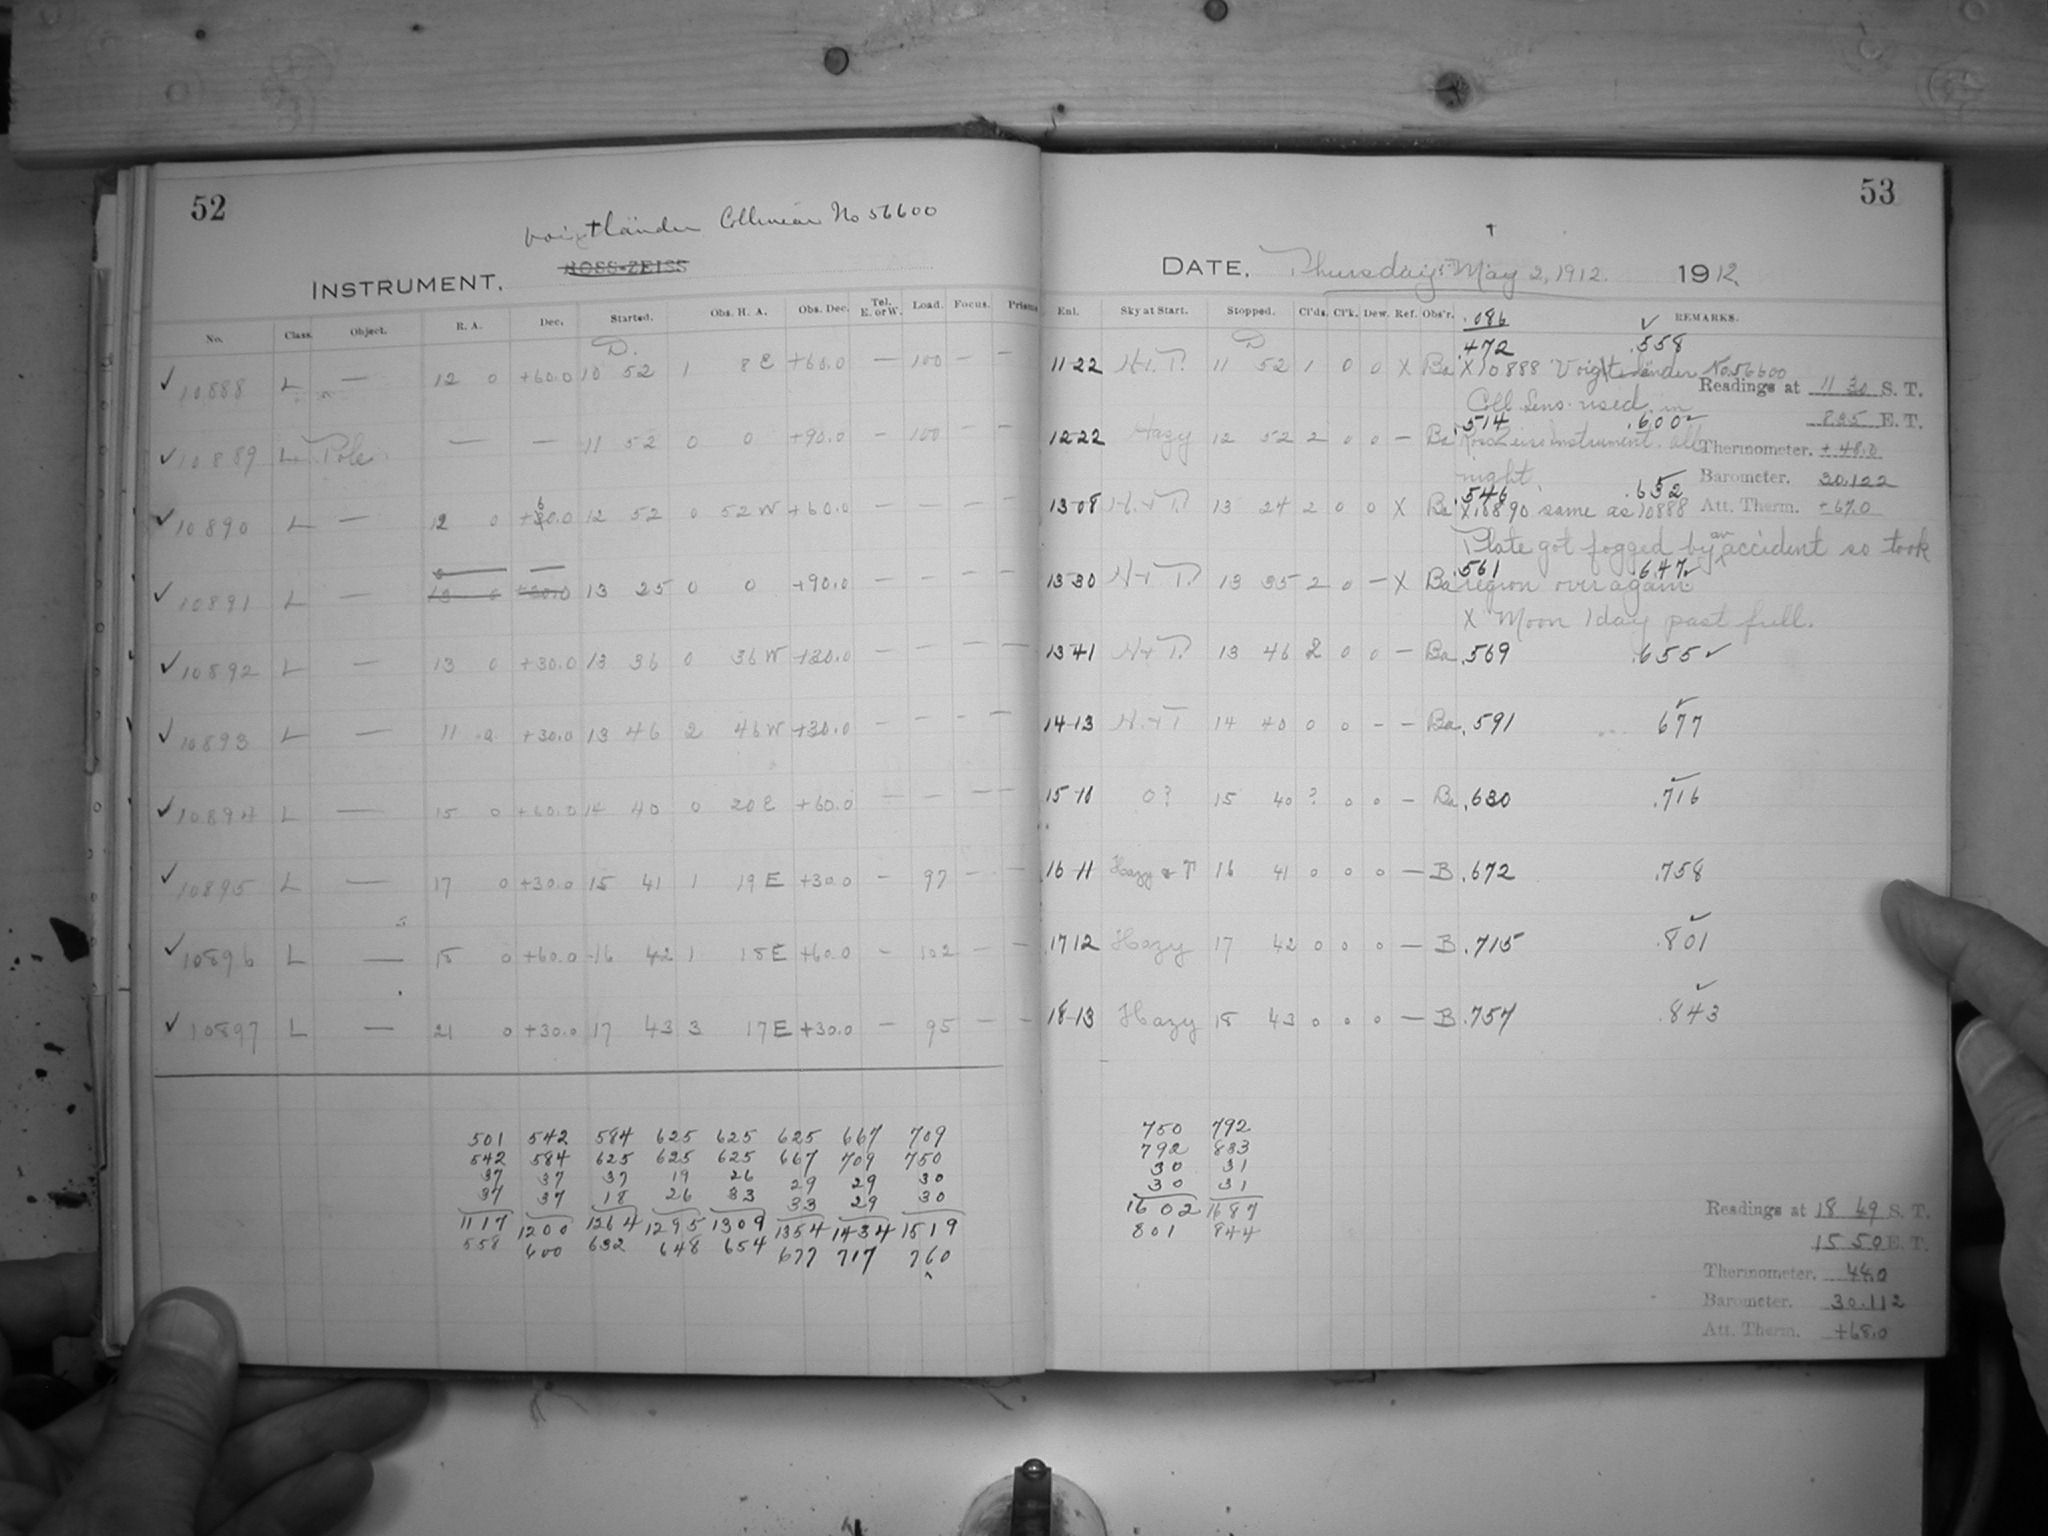 52
Voigtländer Collinear No 56600
INSTRUMENT. ROSS-ZEISS
No. Class. Object. R. A. Dec. Started. Obs. H. A. Obs. Dec. Tel. E. or W. Load. Focus. Prisms
D.
✓ 10888 L — 12 0 +60.0 10 52 1 8 E +60.0 — 100 — —
✓ 10889 L Pole — — 11 52 0 0 +90.0 — 100 — —
✓ 10890 L — 12 0 +60.0 12 52 0 52 W +60.0 — — — —
✓ 10891 L — — — 13 25 0 0 +90.0 — — — —
✓ 10892 L — 13 0 +30.0 13 36 0 36 W +30.0 — — — —
✓ 10893 L — 11 0 +30.0 13 46 2 46 W +30.0 — — — —
✓ 10894 L — 15 0 +60.0 14 40 0 20 E +60.0 — — — —
✓ 10895 L — 17 0 +30.0 15 41 1 19 E +30.0 — 97 — —
✓ 10896 L — 18 0 +60.0 16 42 1 18 E +60.0 — 102 — —
✓ 10897 L — 21 0 +30.0 17 43 3 17 E +30.0 — 95 — —
501 542 584 625 625 625 667 709
542 584 625 625 625 667 709 750
37 37 37 19 26 29 29 30
37 37 18 26 33 33 29 30
1117 1200 1264 1295 1309 1354 1434 1519
558 600 632 648 654 677 717 760
53
DATE, Thursday, May 2, 1912. 1912.
Enl. Sky at Start. Stopped. Cl'ds. Cl'k. Dew. Ref. Obs'r. REMARKS.
.086
D
.472 .558 ✓
11-22 H.+T. 11 52 1 0 0 X Ba X 10888 Voigtländer No. 56600
Readings at 11 30 S. T.
Coll Lens used in
.514 .600 ✓
8 35 E. T.
12-22 Hazy 12 52 2 0 0 — Ba Ross Zeiss Instrument. all
Thermometer. +48.0
night.
Barometer. 30.122
.546 .632 ✓
13-08 H.+T. 13 24 2 0 0 X Ba X 10890 same as 10888
Att. Therm. +67.0
Plate got fogged by an accident so took
.561 .647 ✓
13-30 H+T. 13 35 2 0 — X Ba region over again
X Moon 1 day past full.
13-41 H+T. 13 46 2 0 0 — Ba .569 .655 ✓
14-13 H.+T 14 40 0 0 — — Ba .591 677 ✓
15-10 0? 15 40 ? 0 0 — Ba .630 .716 ✓
16-11 Hazy + T 16 41 0 0 0 — B .672 .758
17 12 Hazy 17 42 0 0 0 — B .715 .801 ✓
18-13 Hazy 18 43 0 0 0 — B .757 .843 ✓
750 792
792 833
30 31
30 31
1602 1687
801 844
Readings at 18 49 S. T.
15 50 E. T.
Thermometer. 44.0
Barometer. 30.112
Att. Therm. +68.0